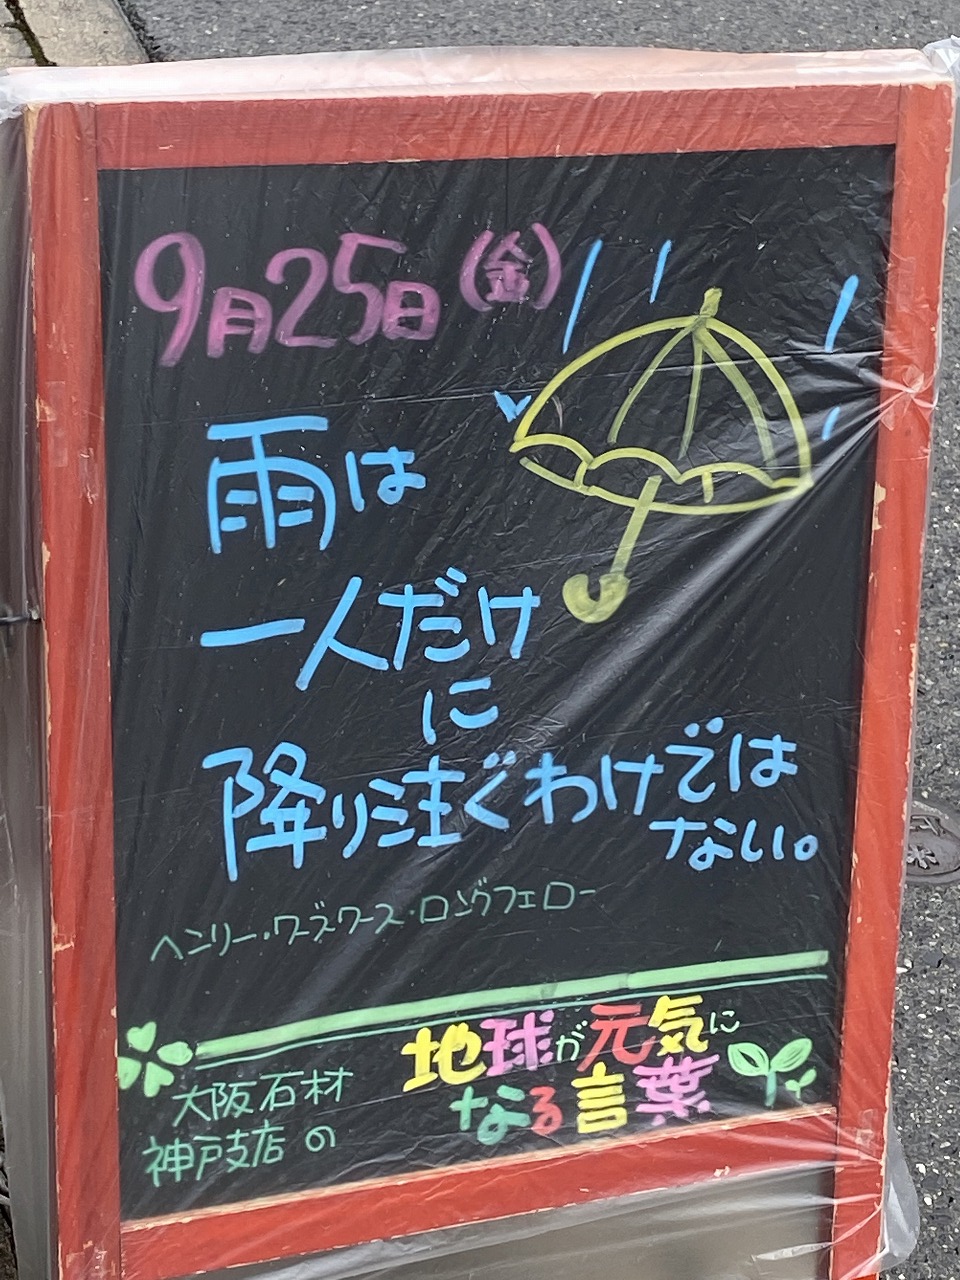 9月25日(金)
雨は
一人だけ
に
降り注ぐわけでは
ない。
ヘンリー・ワズワース・ロングフェロー
大阪石材
神戸支店の
地球が元気に
なる言葉